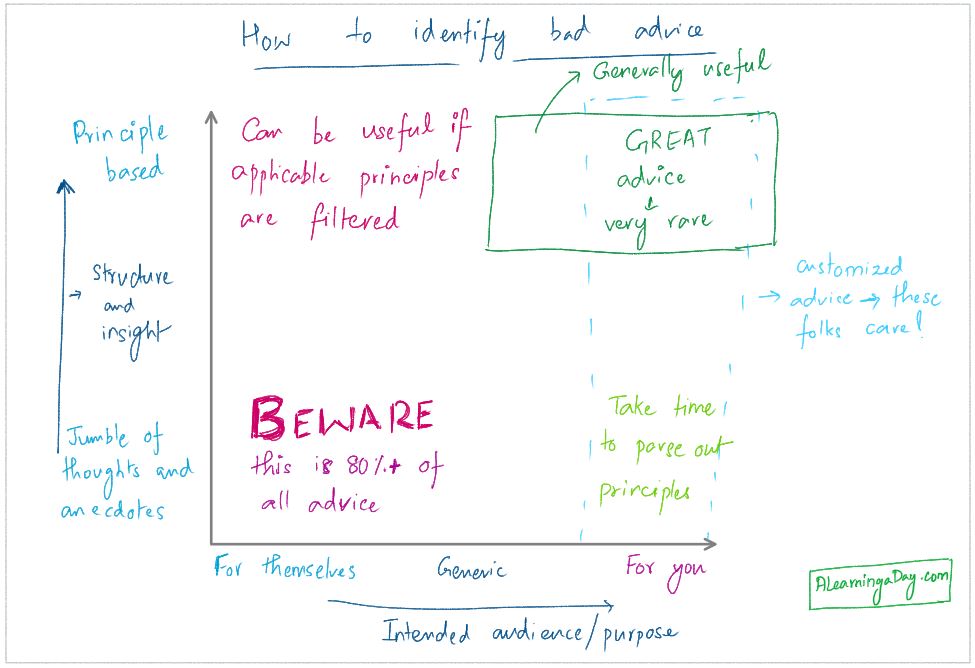 How to identify bad advice
Generally useful
Principle
based
Can be useful if
applicable principles
are filtered
GREAT
advice
very rare
Structure
and
insight
customized
advice → these
folks care!
Jumble of
thoughts and
anecdotes
BEWARE
this is 80%+ of
all advice
Take time
to parse out
principles
For themselves
Generic
For you
Intended audience/purpose
ALearningaDay.com